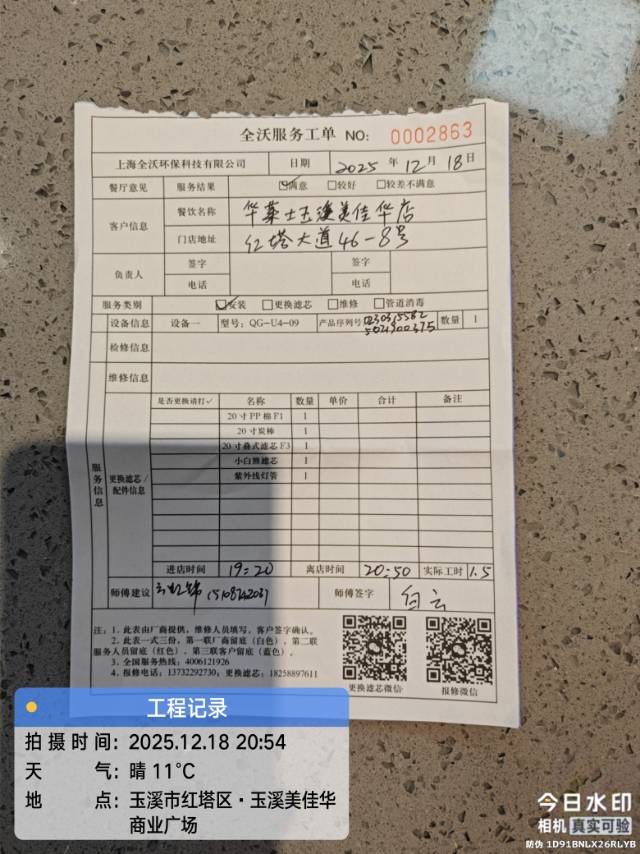 全沃服务工单 NO: 0002863
上海全沃环保科技有限公司 日期 2025 年 12 月 18 日
餐厅意见 服务结果 ☑满意 ☐较好 ☐较差不满意
客户信息 餐饮名称 华莱士玉溪美佳华店
门店地址 红塔大道46-8号
负责人 签字 签字
电话 电话
服务类别 ☑安装 ☐更换滤芯 ☐维修 ☐管道消毒
设备信息 设备一 型号: QG-U4-09 产品序列号 数量 1
检修信息
维修信息
服务信息
更换滤芯/配件信息
是否更换请打✓ 名称 数量 单价 合计 备注
20寸PP棉F1 1
20寸炭棒 1
20寸叠式滤芯F3 1
小白熊滤芯 1
紫外线灯管 1
进店时间 19:20 离店时间 20:50 实际工时 1.5
师傅建议 师傅签字 白云
注: 1. 此表由厂商提供, 维修人员填写, 客户签字确认。
2. 此表一式三份, 第一联厂商留底(白色), 第二联
服务人员留底(红色), 第三联客户留底(蓝色)。
3. 全国服务热线: 4006121926
4. 报修电话: 13732292730; 更换滤芯: 18258897611
更换滤芯微信 报修微信
工程记录
拍摄时间: 2025.12.18 20:54
天 气: 晴 11°C
地 点: 玉溪市红塔区·玉溪美佳华
商业广场
今日水印
相机 真实可验
防伪 1D91BNLX26RLYB